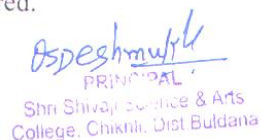 red.
DSDeshmukh
PRINCIPAL
Shri Shivaji Science & Arts
College, Chikhli, Dist Buldana